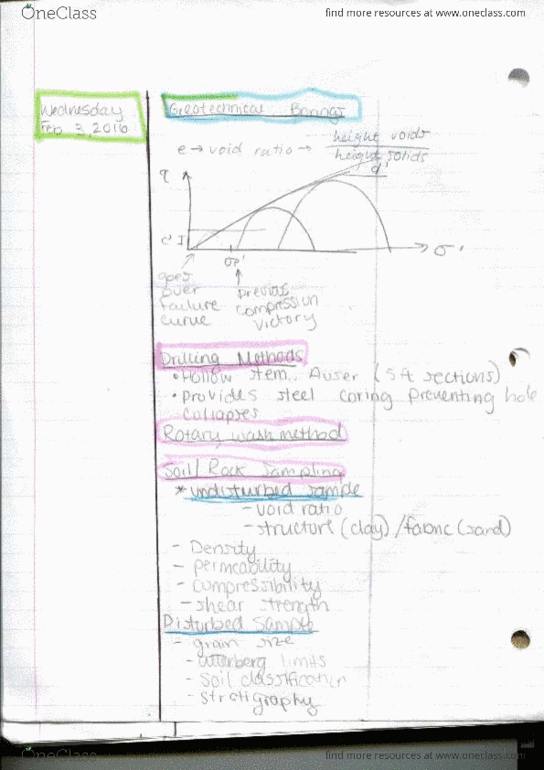 OneClass
find more resources at www.oneclass.com
Wednesday
Feb 3, 2016
Geotechnical Borings
e → void ratio → height voids
height solids
q
d'
c' I
σp'
σ'
goes
over
failure
curve
previous
compression
victory
Drilling Methods
• Hollow stem.. Auger (5ft sections)
• Provides steel coring preventing hole
collapses
Rotary wash method
Soil/Rock Sampling
* undisturbed sample
- void ratio
- structure (clay) /fabric (sand)
- Density
- permeability
- compressibility
- shear strength
Disturbed Sample
- grain size
- Atterberg limits
- Soil classification
- stratigraphy
OneClass
find more resources at www.oneclass.com